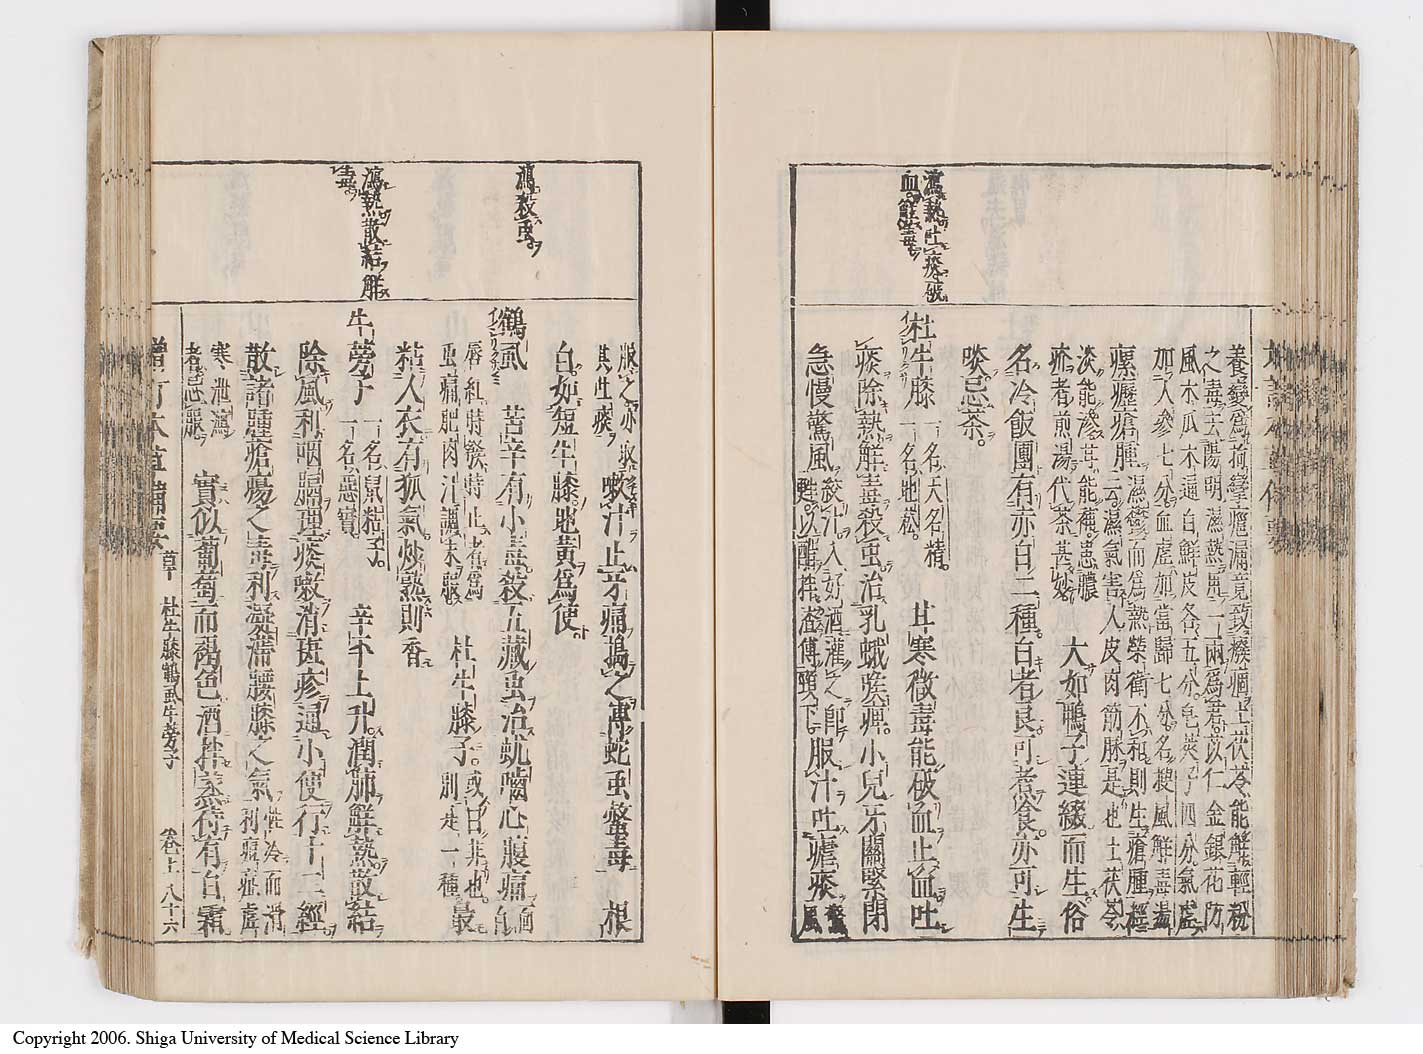 瀉熱吐痰破
血解毒
之毒去陽明濕熱用一兩爲君苡仁金銀花防
風木瓜木通白鮮皮各五分皂莢子四分氣虛
加人參七分血虛加當歸七分名搜風解毒湯
瘰癧瘡腫
濕鬱而爲熱榮衛不和則生瘡腫經
云濕氣害人皮肉筋脉是也土茯苓
淡能滲甘能補患膿
疥者煎湯代茶甚妙
大如鴨子連綴而生俗
名冷飯團有赤白二種白者良可煮食亦可生
啖忌茶
杜牛膝
一名天名精
一名地菘
甘寒微毒能破血止血吐
痰除熱解毒殺虫治乳蛾喉痺小兒牙關緊閉
急慢驚風
絞汁入好酒灌之即
甦以醋拌渣傅頸下
服汁吐瘧痰
瀉殺虫
瀉熱散結解
毒
服之亦取
其吐痰
漱汁止牙痛搗之傅蛇虫螫毒
根
白如短牛膝地黃爲使
鶴虱
苦辛有小毒殺五藏虫治蚘嚙心腹痛
面白
唇紅時發時止者爲
虫痛肥肉汁調末服
杜牛膝子
或曰非也
別是一種
最
粘人衣有狐氣炒熟則香
牛蒡子
一名鼠粘子
一名惡實
辛平上升潤肺解熱散結
除風利咽膈理痰嗽消斑疹通小便行十二經
散諸腫瘡瘍之毒利凝滯腰膝之氣
性冷而滑
利痘症虛
寒泄瀉
者忌服
實似葡萄而褐色酒拌蒸待有白霜
增訂本草備要
草
杜牛膝鶴虱牛蒡子
卷上
八十六
Copyright 2006. Shiga University of Medical Science Library